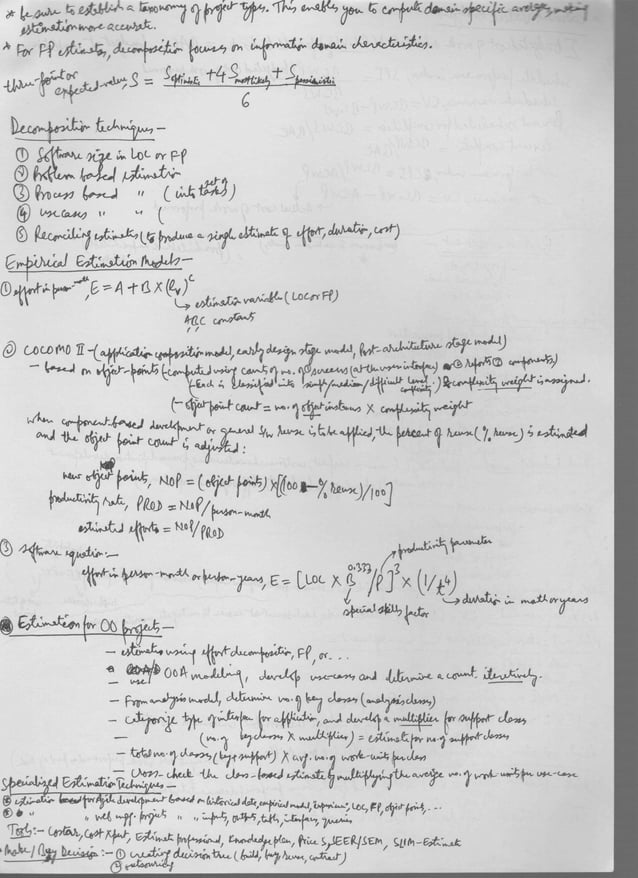 * be sure to establish a taxonomy of project types. This enables you to compute domain specific averages, making
estimation more accurate.
* For FP estimates, decomposition focuses on information domain characteristics.
three-point or
expected value, S = Soptimistic + 4 Smost likely + Spessimistic
6
Decomposition techniques -
① Software size in LOC or FP
② Problem based estimation
③ Process based " (into set of tasks)
④ usecases " " (
⑤ Reconciling estimates (to produce a single estimate of effort, duration, cost)
Empirical Estimation Models -
① effort in person-month, E = A + B X (ev)^C
→ estimation variable (LOC or FP)
A,B,C constants
② COCOMO II - (application composition model, early design stage model, Post-architecture stage model)
- based on object-points (computed using counts of no. of ① screens (at the user interface) ② reports ③ components)
(- Each is classified into simple/medium/difficult level complexity) & complexity weight is assigned.
(- object point count = no. of object instances X complexity weight
when component-based development or general s/w reuse is to be applied, the percent of reuse (% reuse) is estimated
and the object point count is adjusted:
new object points, NOP = (object points) X [(100 - % reuse)/100]
productivity rate, PROD = NOP/person-month
estimated effort = NOP/PROD
③ software equation:-
→ productivity parameter
effort in person-month or person-years, E = [LOC X B^0.333/P]^3 X (1/t^4)
special skills factor
→ duration in month or years
Estimation for OO projects -
- estimates using effort decomposition, FP, or ...
- use OOA modeling, develop use-cases and determine a count. iteratively.
- From analysis model, determine no. of key classes (analysis classes)
- categorize type of interface for application, and develop a multiplier for support classes
- (no. of key classes X multipliers) = estimate for no. of support classes
- total no. of classes (key + support) X avg. no. of work-units per class
- Cross-check the class-based estimate by multiplying the average no. of work-units per use-case
Specialized Estimation Techniques -
① estimation for agile development based on historical data, empirical model, experience, LOC, FP, object points, ...
② " " web app. projects " " inputs, outputs, tables, interfaces, queries
Tools:- Costar, Cost Xpert, Estimate Professional, Knowledge plan, Price S, SEER/SEM, SLIM-Estimate
Make/Buy Decision:- ① creating decision tree (build, buy, reuse, contract)
② outsourcing